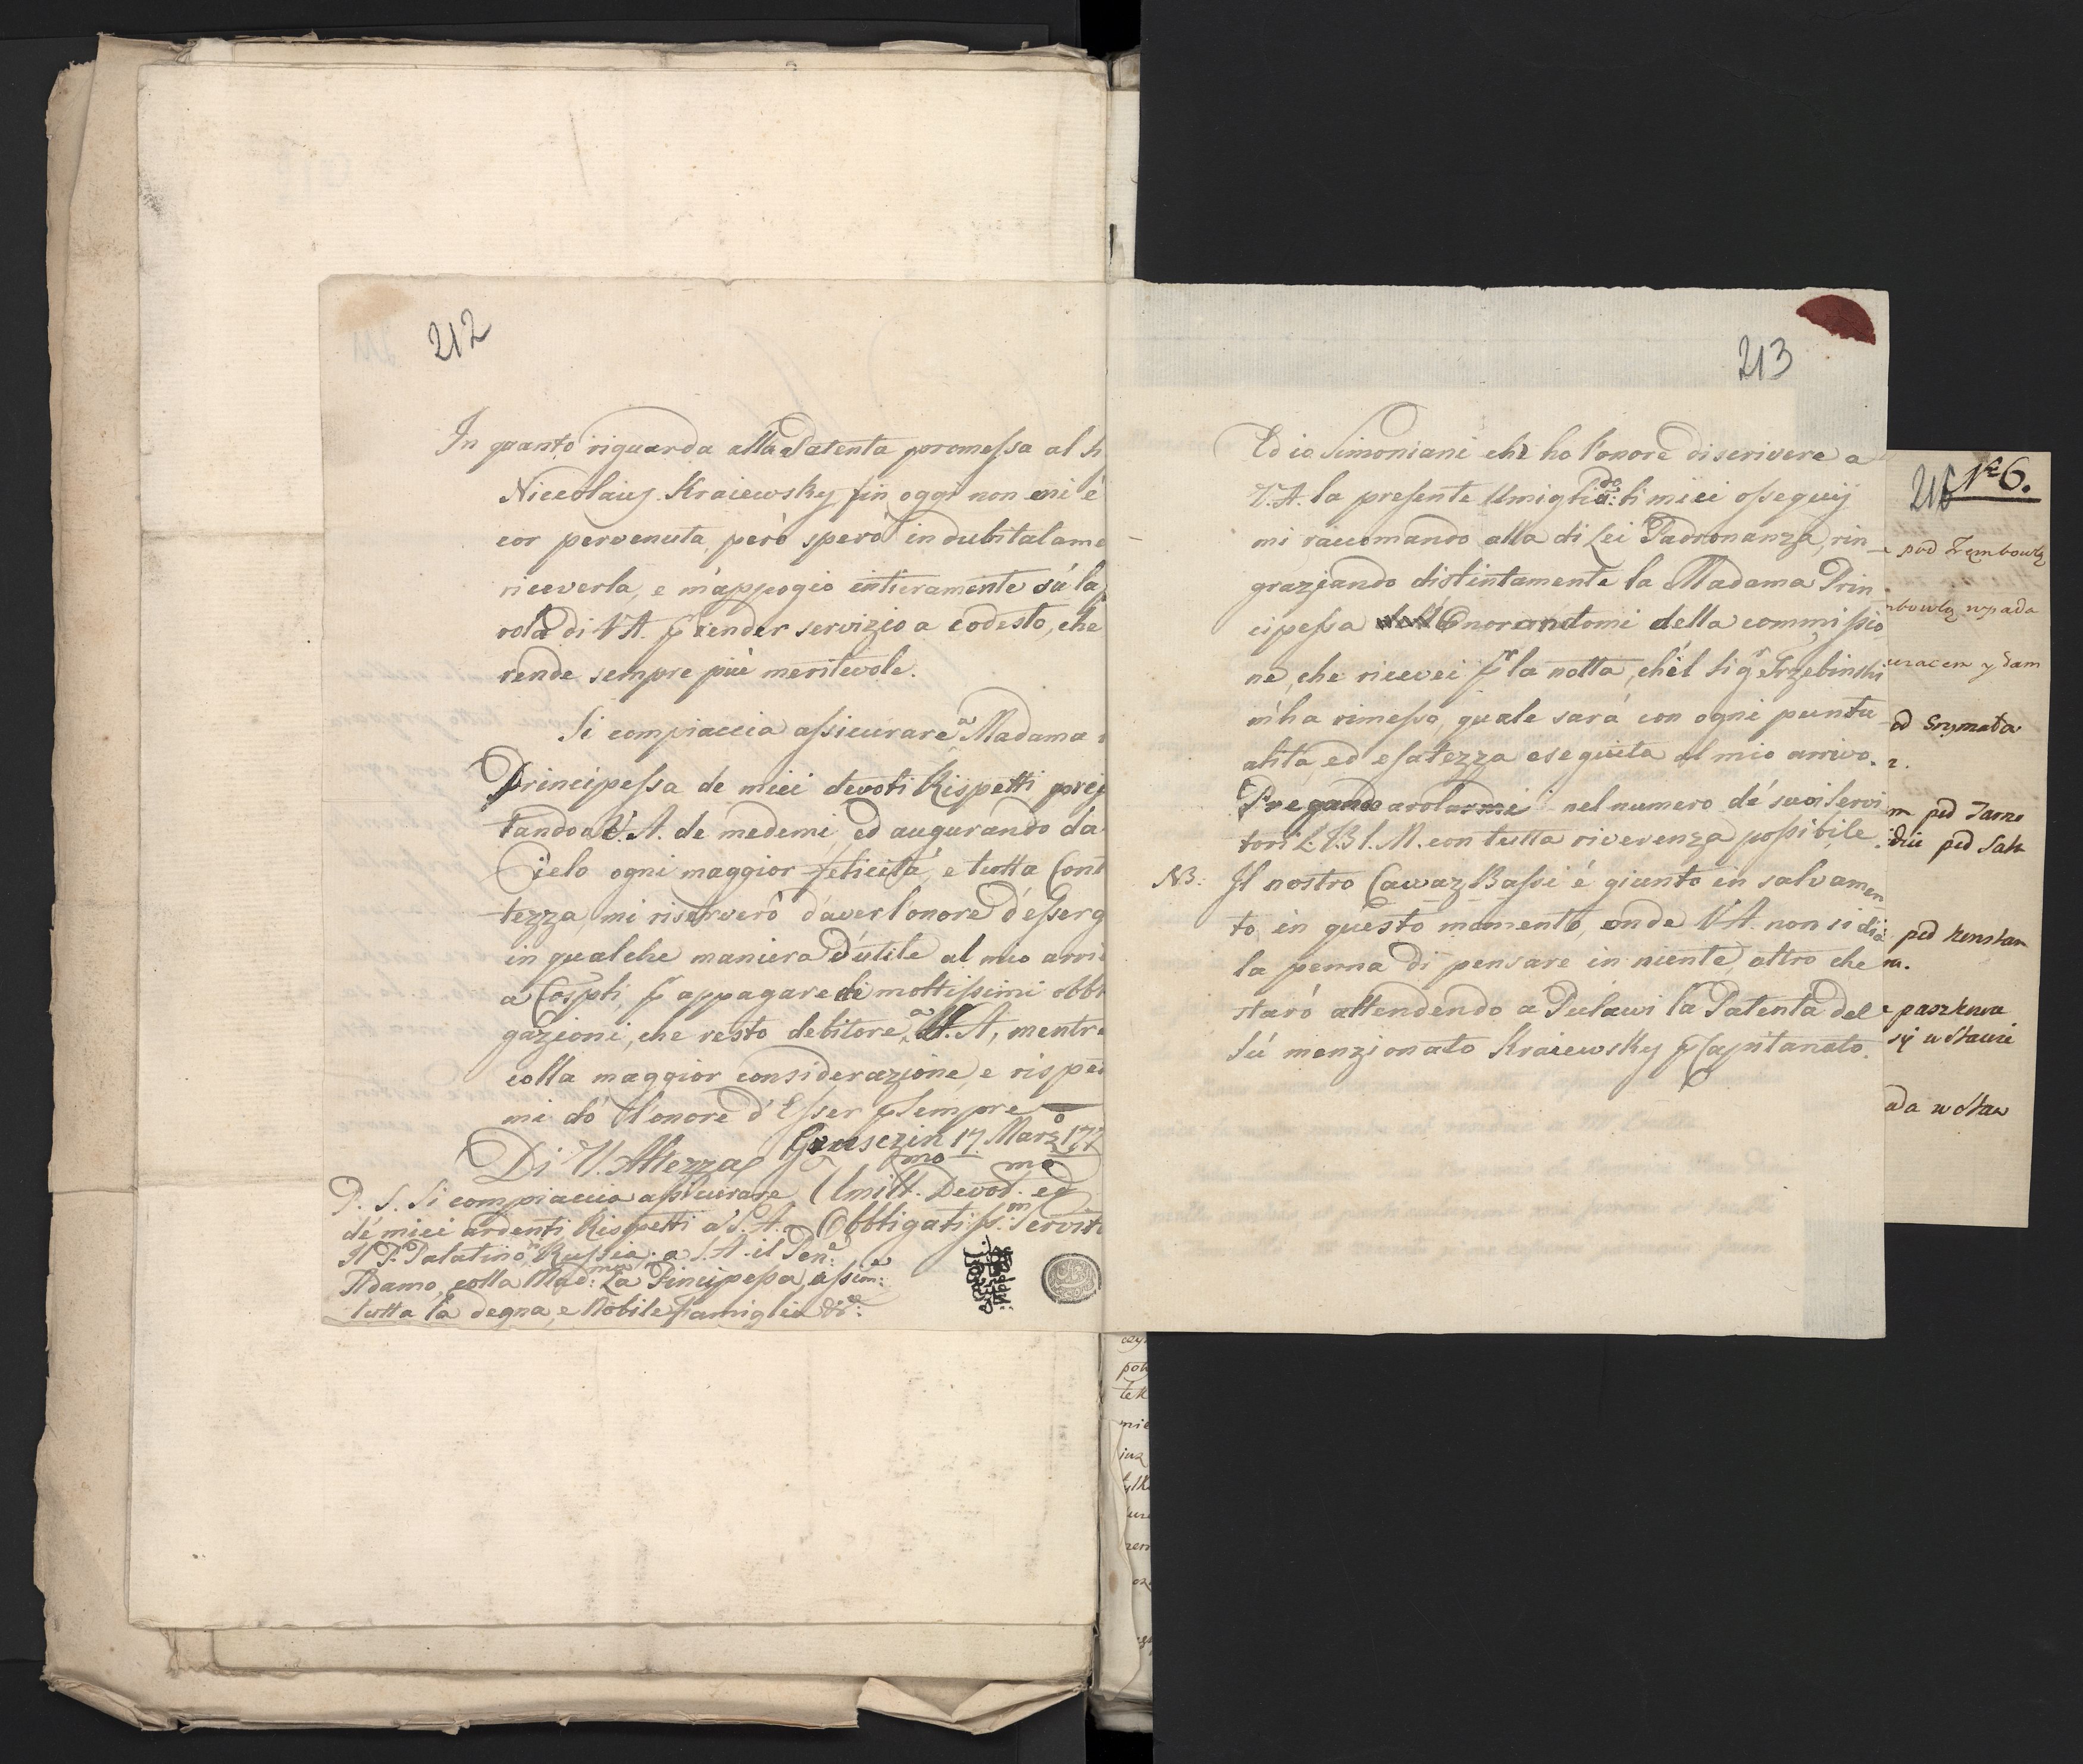 212
In quanto riguarda alla Patenta promessa al Si
Niccolaius Kraiewsky fin oggi non mi è
cor pervenuta, però spero indubitalame
riceverla, e m'appogio intieramente sù la p
rola di V.A. p render servizio a codesto, che
rende sempre più meritevole.
Si compiaccia assicurare a Madama
Principessa de miei devoti Rispetti prej
tando a V.A. de medemi, ed augurando da
Cielo ogni maggior felicità, e tutta Cont
tezza, mi riserverò d'aver l'onore d'esserg
in qualche maniera d'utile al mio arri
a Cospli, p appagare di moltissimi obbl
gazioni, che resto debitore a V.A, mentre
colla maggior considerazione, e rispe
mi dò l'onore d'Esser p sempre
Di V. Altezza Gousczin 17. Marzo 177
P. S. Si compiaccia assicurare Umilt.mo Devot.mo ed
de miei ardenti Rispetti a S.A. Obbligatiss.mo Servit
Il P. Palatino Russia: a S.A. il Gen:
Adamo, colla Mad:ma La Principessa, assiem:e
tutta la degna, e Nobile famiglia &c:
213
Ed io Simoniani che ho l'onore di scrivere a
V.A. la presente Umiglia:do li miei ossequij
mi raccomando alla di Lei Padronanza, rin
graziando distintamente la Madama Prin
cipessa Onorandomi della commissio
ne, che ricevei p la notta, ch'el Sig.r Trzebinski
m'ha rimessa, quale sarà con ogni puntu
alità, ed esatezza eseguita al mio arrivo.
Pregando arolarmi nel numero de' suoi Servi
tori L.B.L.M. con tutta riverenza possibile.
NB: Il nostro Cawaz Bassi è giunto in salvamen
to in questo momento, onde V.A. non si dia
la penna di pensare in niente, altro che
starò attendendo a Pulawi la Patenta del
sù menzionato Kraiewsky p Capitanato.
N.6.
pod Trembowlą
mbowlą wpada
pod Jarno
w Staw